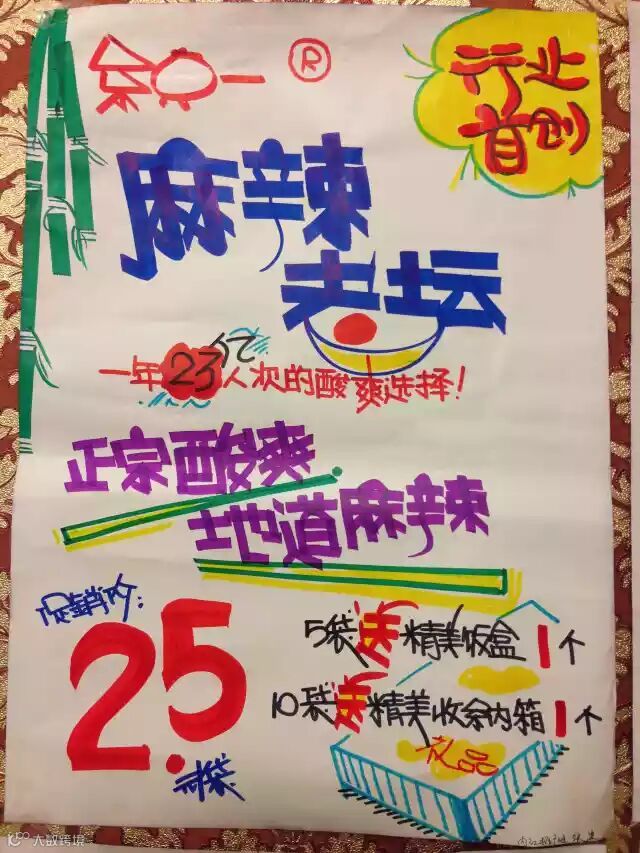 ®
行业
首创
麻辣
老坛
一年23亿人次的酸爽选择！
正宗酸爽
地道麻辣
促销价：
2.5
/袋
5袋送精美饭盒1个
10袋送精美收余内箱1个
礼品
大数跨境